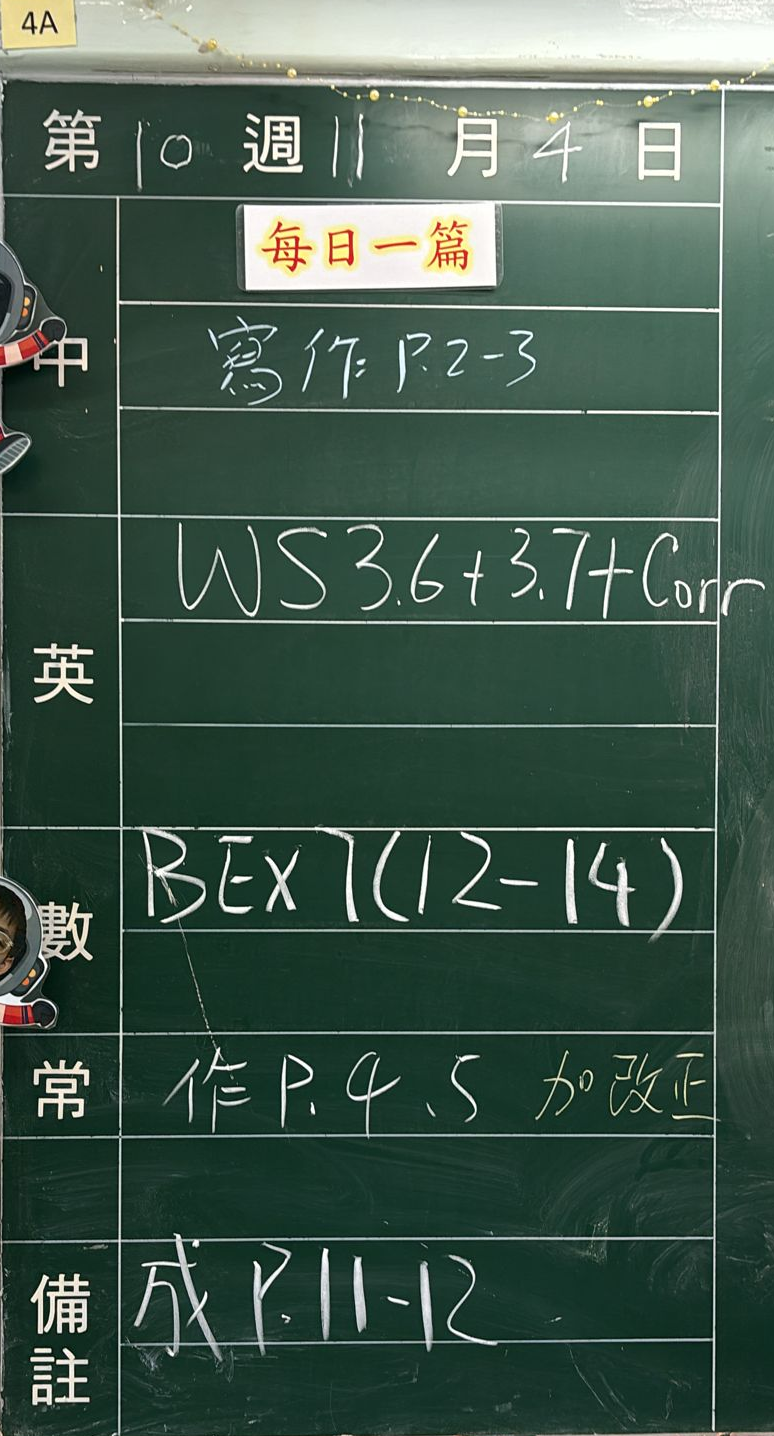 4A
第 10 週 11 月 4 日
每日一篇
中
寫作 P.2-3
WS 3.6+3.7+Corr
英
BEX 7(12-14)
數
常 作 P.4、5 加改正
備註
成 P.11-12